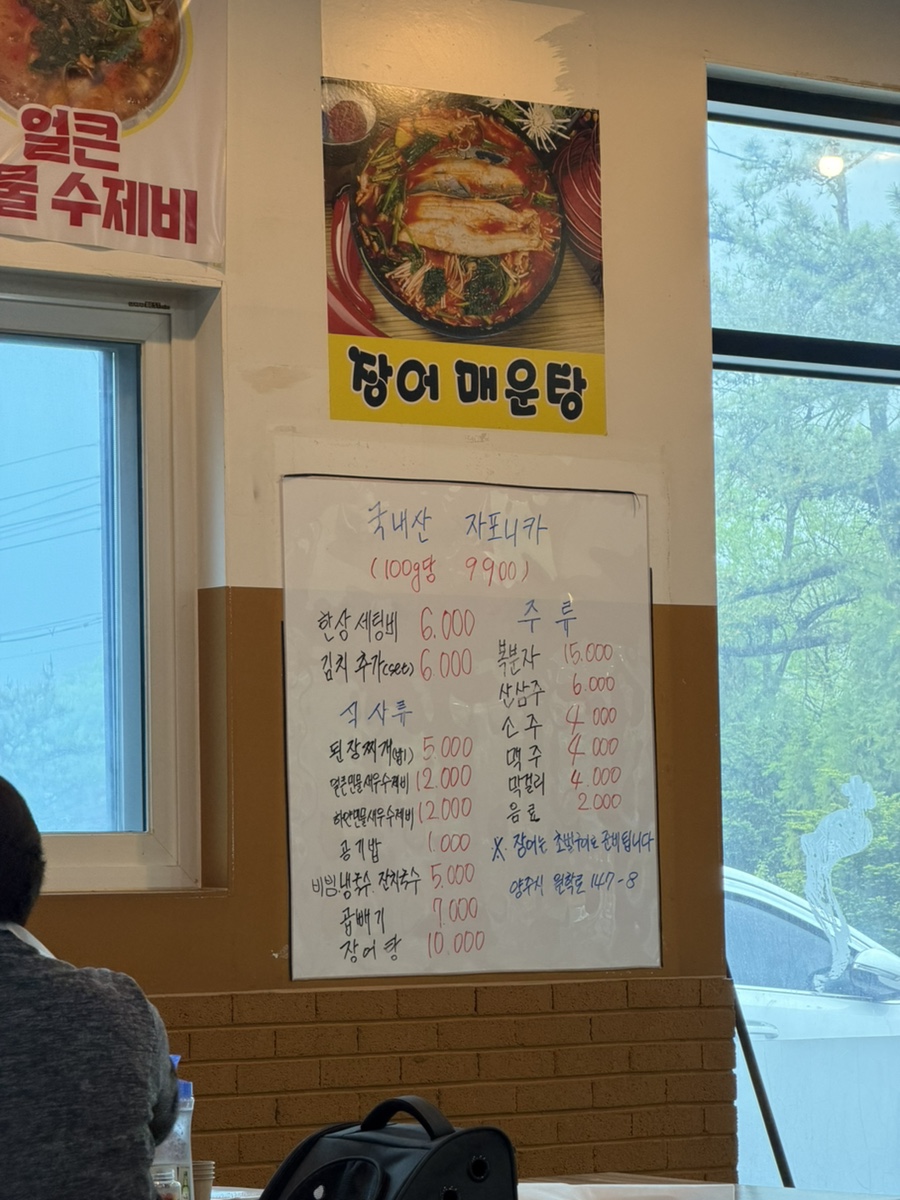 얼큰
물 수제비
장어 매운탕
국내산 자포니카
(100g당 9900)
한상 세팅비 6.000
김치 추가(set) 6.000
식사류
된장찌개(밥) 5.000
얼큰민물새우수제비 12.000
하얀민물새우수제비 12.000
공기밥 1.000
비빔.냉국수.잔치국수 5.000
곱빼기 7.000
장어탕 10.000
주류
복분자 15.000
산삼주 6.000
소주 4.000
맥주 4.000
막걸리 4.000
음료 2000
※. 장어는 초벌구이로 준비됩니다
양주시 147-8